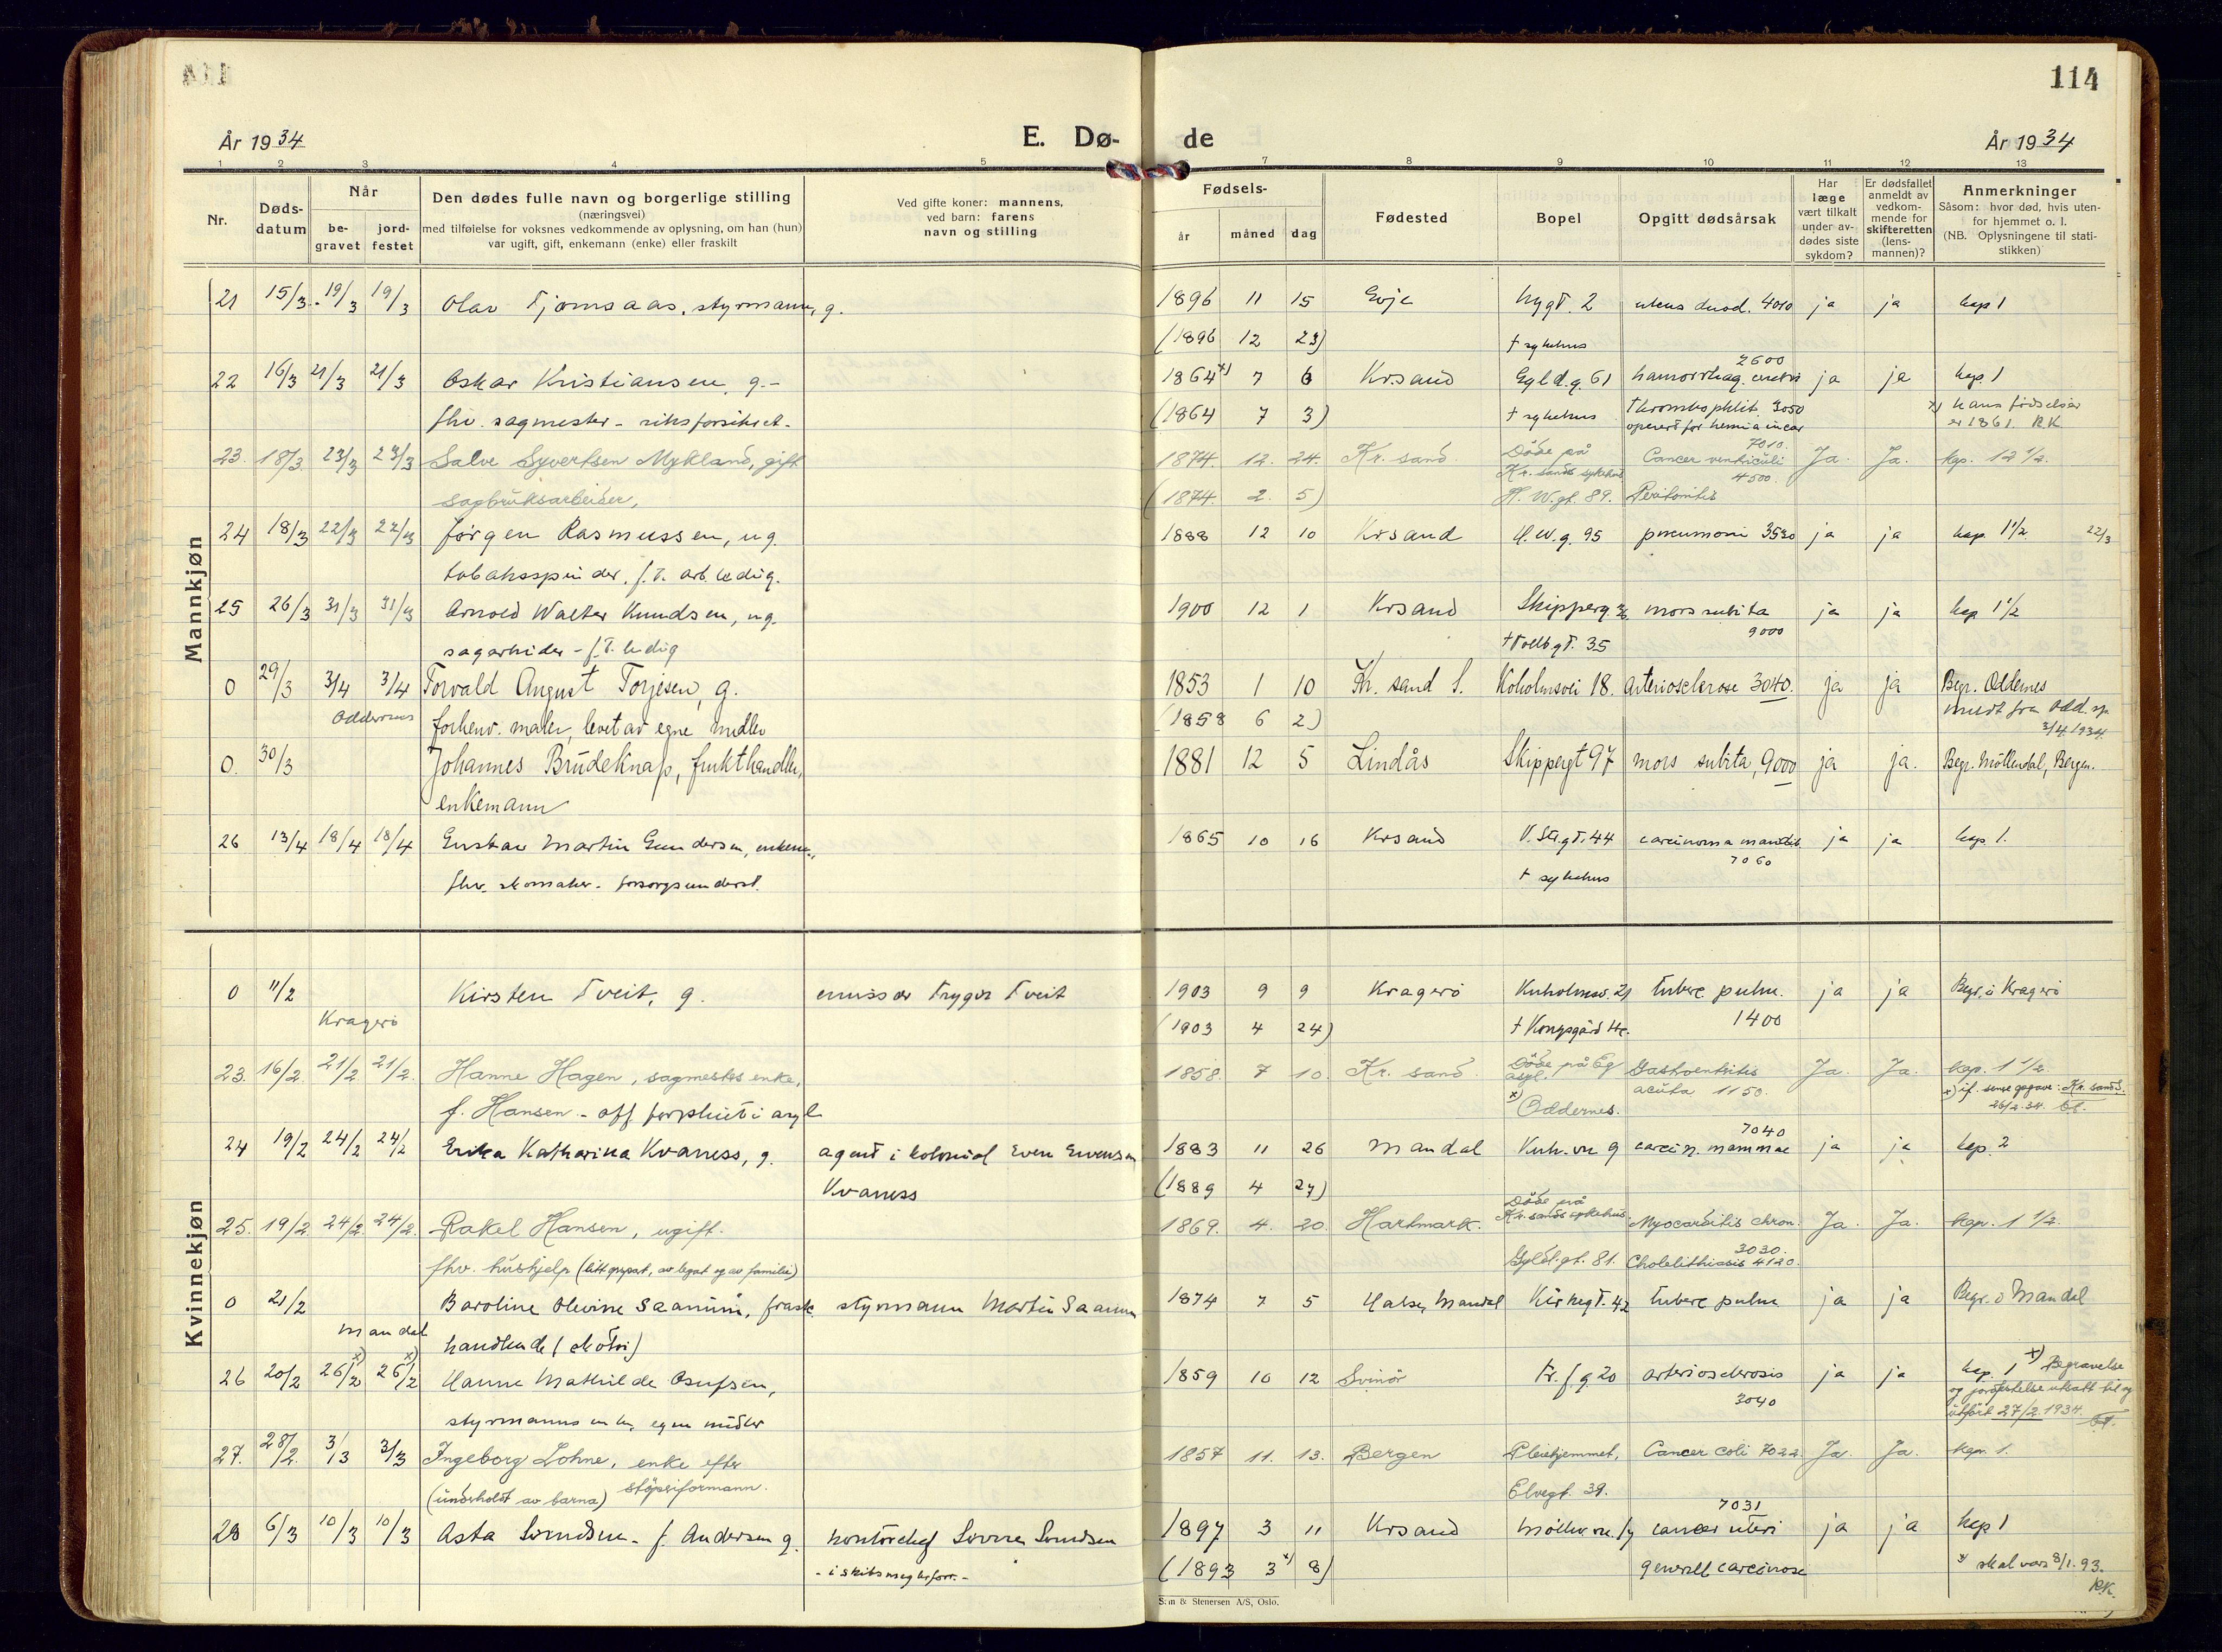 114
År 1934
E. Dø-
de
År 1934
1 2 3 4 5 7 8 9 10 11 12 13
Nr.
Døds-
datum
Når
be-
gravet
jord-
festet
Den dødes fulle navn og borgerlige stilling
(næringsvei)
med tilføielse for voksnes vedkommende av oplysning, om han (hun)
var ugift, gift, enkemann (enke) eller fraskilt
Ved gifte koner: mannens,
ved barn: farens
navn og stilling
Fødsels-
år måned dag
Fødested
Bopel
Opgitt dødsårsak
Har
læge
vært tilkalt
under av-
dødes siste
sykdom?
Er dødsfallet
anmeldt av
vedkom-
mende for
skifteretten
(lens-
mannen)?
Anmerkninger
Såsom: hvor død, hvis uten-
for hjemmet o. l.
(NB. Oplysningene til stati-
stikken)
Mannkjøn
21 15/3 19/3 19/3 Olav Tjomsaas, styrmann, g. 1896 11 15 Evje 2 ulcus duod. 4010 ja ja kap 1
(1896 12 23) † sykehus
2600
22 16/3 21/3 21/3 Oskar Kristiansen, g. - 1864 x) 7 6 Kr.sand Gyld.g. 61 ja ja kap. 1
fhv. sagmester - (1864 7 3) † sykehus thrombophlit. 3050 x) hans fødselsår
operert for hernia er 1861. RK
7010.
23. 18/3 23/3 23/3 Salve Syvertsen Mykland, gift 1874. 12. 24. Kr. sand. Døde på Cancer ventriculi Ja. Ja. kap. 1 1/2.
Kr. sands sykehus 4500.
sagbruksarbeider, (1874. 2. 5) H. W.gt. 89. Peritonitis
24 18/3 22/3 22/3 Jørgen Rasmussen, ug. 1888 12 10 Krsand H.W.g. 95 pneumoni 3530 ja ja kap. 1 1/2 22/3
tobakspinder, f.t. arb.ledig.
25 26/3 31/3 31/3 Arnold Walter Knudsen, ug. 1900 12 1 Krsand Skipperg mors subita ja ja kap 1 1/2
9000
sagarbeider - f.t. ledig † Tollbgt. 35
0 29/3 3/4 3/4 Torvald August Torjesen, g. 1853 1 10 Kr. sand S. Koholmsvei 18. Arteriosclerose 3040. ja ja Begr. Oddernes
Oddernes forhenv. maler, levet av egne midler (1858 6 2) meldt fra Odd. sp.
3/4 1934.
0. 30/3 Johannes Brudeknap, frukthandler, 1881 12 5 Lindås Skippergt 97 mors subita, 9000 ja ja. Begr. Möllendal, Bergen.
enkemann
26 13/4 18/4 18/4 Gustav Martin Gundersen, enkem., 1865 10 16 Krsand V. Str.gt. 44 carcinoma mandib. ja ja kap. 1.
7060
fhv. skomaker - forsorgsunderst. † sykehus
Kvinnekjøn
0 11/2 Kirsten Tveit, g. emissær Trygve Tveit 1903 9 9 Kragerö Kuholmsv. 21 tuberc pulm. ja ja Begr. i Kragerö
Kragerö (1903 4 24) † Kongsgård 1400
23. 16/2 21/2 21/2. Hanne Hagen, sagmesters enke, 1858. 7 10. Kr. sand. Døde på Eg Gastroenteritis Ja. Ja. kap. 1 1/2.
asyl. acuta 1150. x) if. senere opgave: Kr. sand S.
f. Hansen - off. forpleiet i asyl x) Oddernes. 26/2. 34.
7040
24 19/2 24/2 24/2 Erika Katharina Kvaness, g. agent i kolonial Even Evensen 1883 11 26 Mandal Kuh.vn 9 carcin. mammae ja ja kap. 2
Kvaness (1889 4 27)
Døde på
25. 19/2. 24/2. 24/2. Rakel Hansen, ugift. 1869. 4. 20. Hartmark. Kr. sands sykehus Myocarditis chron. Ja. Ja. kap. 1 1/2.
3030.
fhv. hushjelp (litt opspart, av legat og av familie) Gyldl.gt. 81. Cholelithiasis 4120.
0 21/2 Baroline Olevine Saanum, frask. styrmann Martin Saanum 1874 7 5 Halse, Mandal Kirkegt. 42 tuberc pulm ja ja Begr. i Mandal
Mandal handlende
26 20/2 26/2 x) 26/2 x) Hanne Mathilde Osufsen, 1859 10 12 Svinör Tr. f. g 20 arteriosclerosis ja ja kap. 1 x) Begravelse
3040 og jordfestelse utsatt til og
styrmanns enke, egne midler utført 27/2. 1934.
27. 28/2. 3/3 3/3 Ingeborg Lohne, enke efter 1857 11. 13. Bergen Pleiehjemmet, Cancer coli 7022. Ja. Ja. kap. 1.
støperiformann.
(underholdt av barna) Elvegt. 39.
7031
28 6/3 10/3 10/3 Asta - f. Andersen g. kontorchef 1897 3 11 Krsand cancer uteri ja ja kap 1
(1893 3 x) 8) generell carcinose x) skal være 8/1. 93.
RK.
& Stenersen A/S, Oslo.